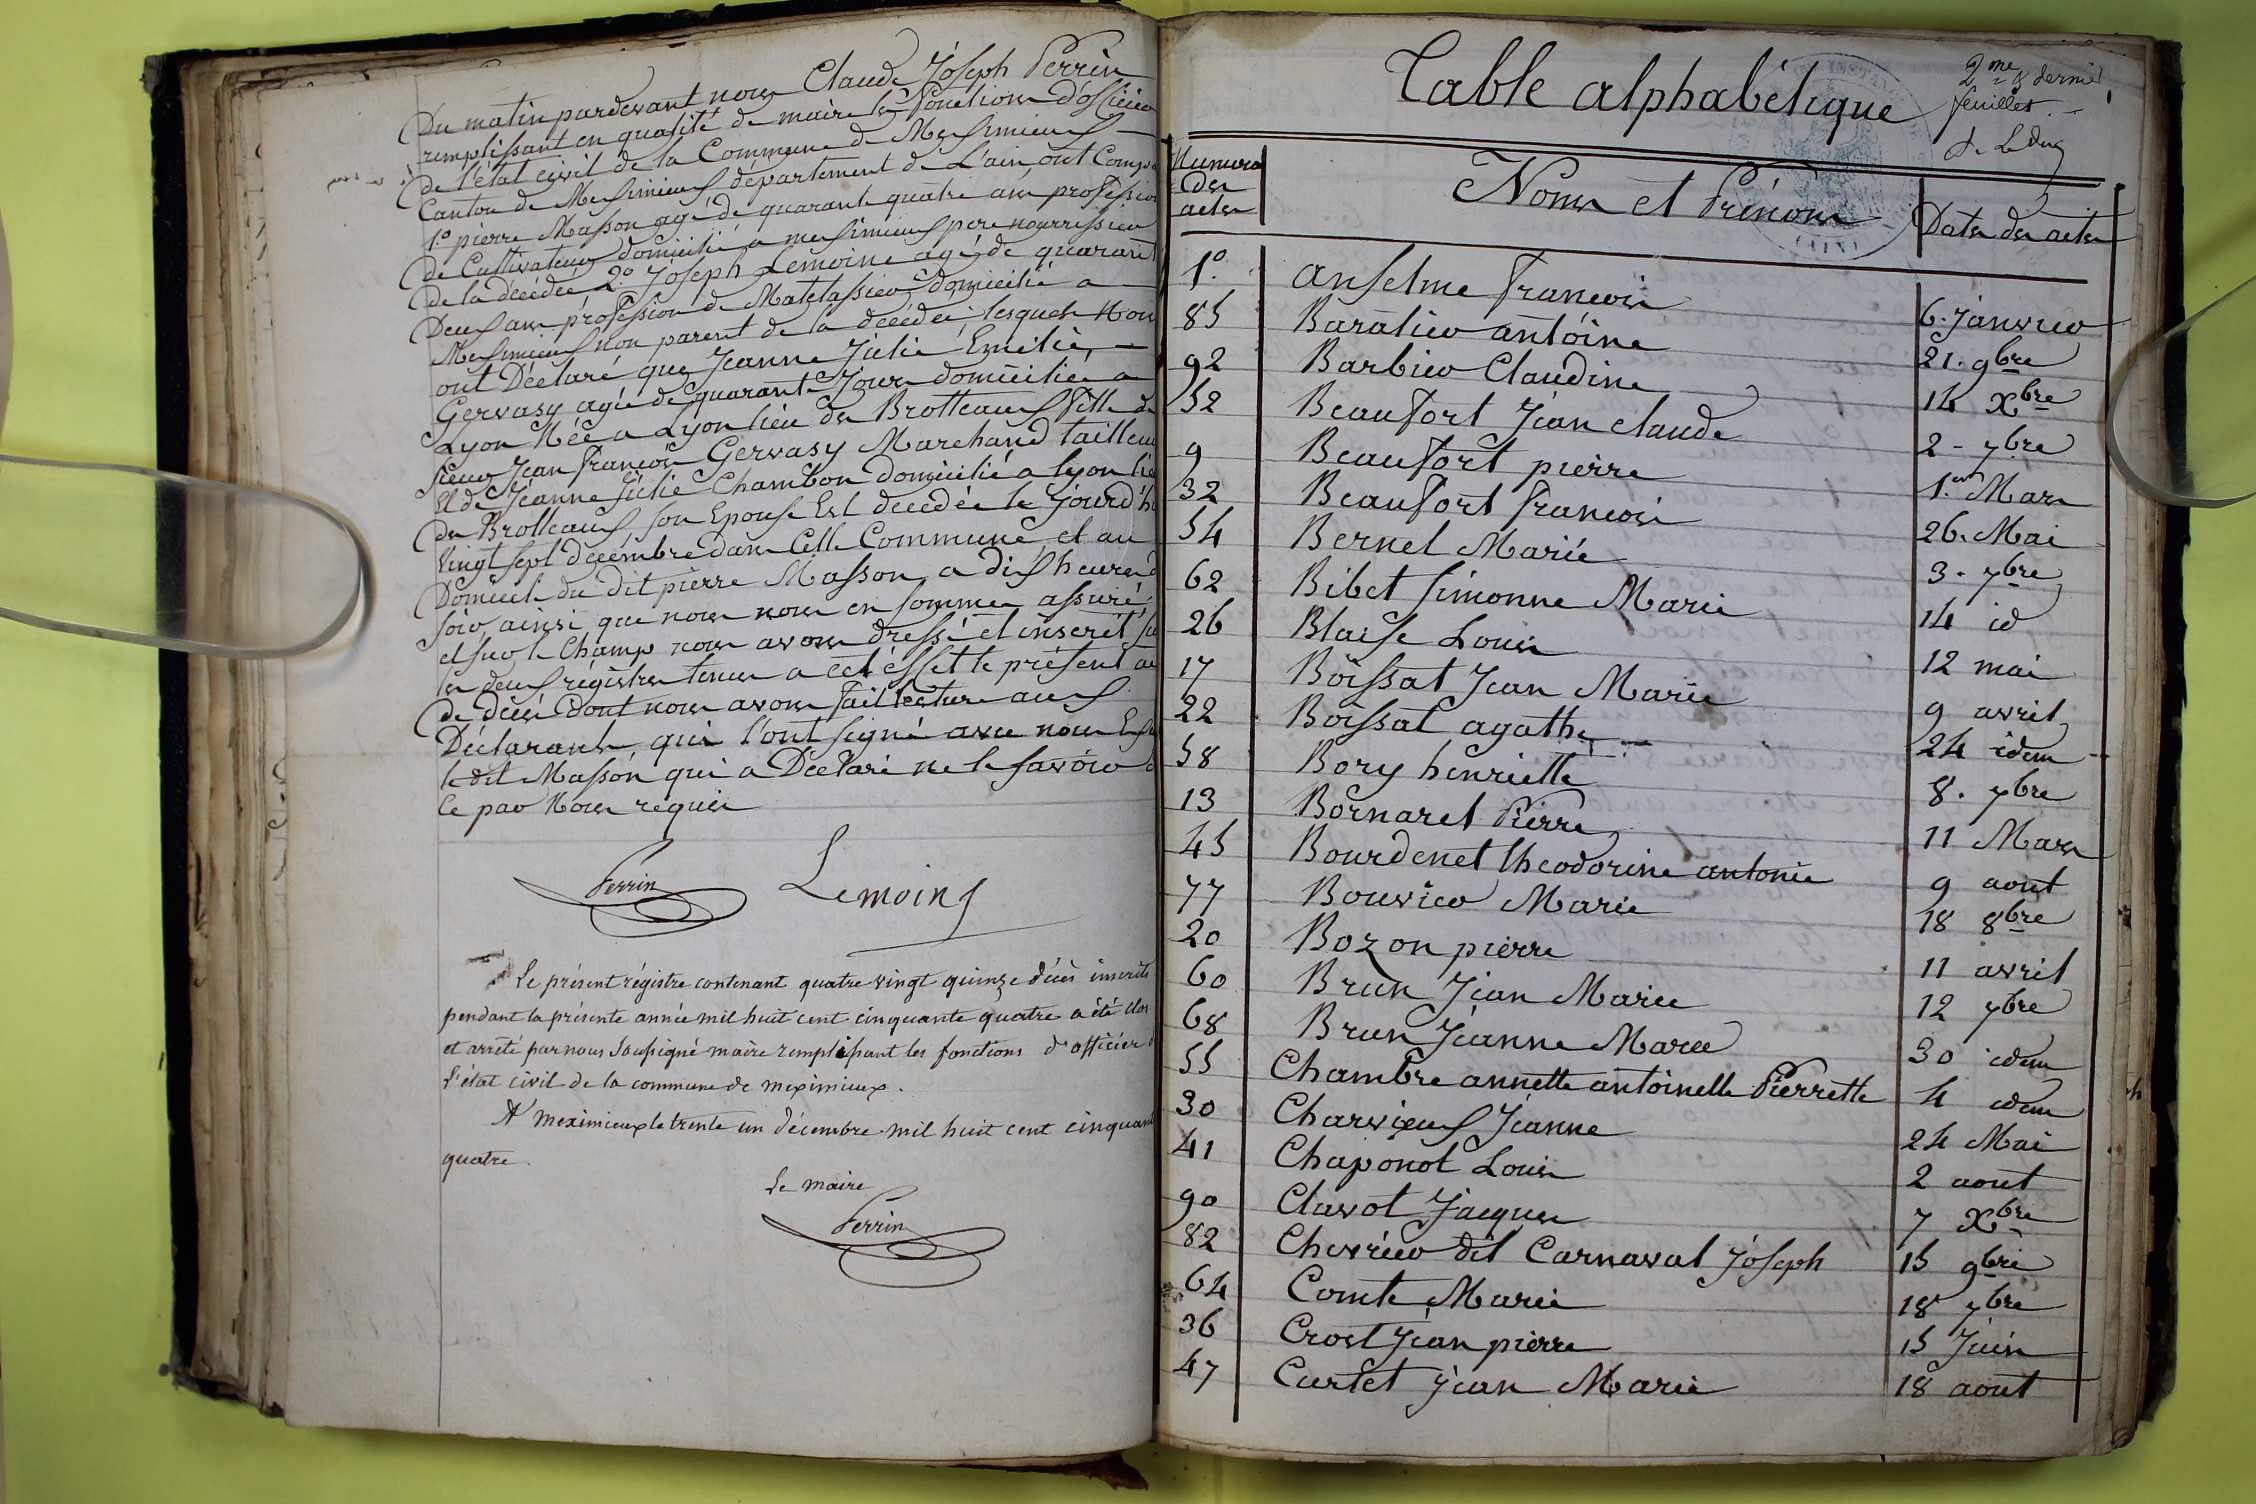 Du matin pardevant nous Claude Joseph Perrin
remplissant en qualité de maire les fonctions d'officier
de l'état civil de la Commune de Meximieux
Canton de Meximieux département de L'ain, ont Comp
1.° pierre Masson agé de quarante quatre ans profession
de Cultivateur domicilié a meximieux pere nourrissier
de la décédée 2.° Joseph Lemoine agé de quarante
Deux ans profession de Matelassier domicilié a
Meximieux non parent de la décédée, lesquels Nous
ont Déclaré que Jeanne Julie Emélie
Gervasy agée de quarante Jours domiciliée a
Lyon Née a Lyon lieu des Brotteaux fille de
sieur Jean françois Gervasy Marchand tailleur
Et de Jeanne Julie Chambon domicilié a lyon lieu
des Brotteaux son Epouse Est decedée le jourd'hu
Vingt sept décembre dans Cette Commune et au
Domicile du dit pierre Masson, a dix heures d
soir, ainsi que nous nous en sommes assuré
et sur le Champ nous avons dressé et inscrit su
les deux régistres tenus a cet éffet le présent ac
de décès dont nous avons fait lecture aux
Déclarants, qui l'ont signé avec nous Ex
le dit Masson qui a Déclaré ne le savoir
ce par Nous requis
Perrin Lemoine
Le présent régistre contenant quatre vingt quinze décès inscrits
pendant la présente année mil huit cent cinquante quatre a été clos
et arrêté par nous soussigné maire remplissant les fonctions d'officier d
l'état civil de la commune de meximieux.
A meximieux le trente un décembre mil huit cent cinquant
quatre.
Le maire
Perrin
Table alphabétique
2me & dernier
feuillet.
Numero des actes Noms et Prénoms Dates des actes
1.° anselme françois 6. janvier
85 Baratier antoine 21. 9bre
92 Barbier Claudine 14 Xbre
52 Beaufort Jean claude 2 - 7bre
9 Beaufort pierre 1.er Mars
32 Beaufort françois 26. Mai
54 Bernet Marie 3 - 7bre
62 Bibet simonne Marie 14 id
26 Blaise Louis 12 mai
17 Boissat Jean Marie 9 avril
22 Boissat agathe 24 idem
58 Bory henriette 8. 7bre
13 Bornaret Pierre 11 Mars
45 Bourdenet théodorine antonie 9 aout
77 Bouvier Marie 18 8bre
20 Bozon pierre 11 avril
60 Brun Jean Marie 12 7bre
68 Brun Jeanne Marie 30 idem
55 Chambre annette antoinette Pierrette 4 idem
30 Charvieux Jeanne 24 Mai
41 Chaponot Louis 2 aout
90 Clavot Jacques 7 Xbre
82 Chevrier dit Carnaval joseph 15 9bre
64 Comte Marie 18 7bre
36 Crost Jean pierre 15 Juin
47 Curtet jean Marie 18 aout